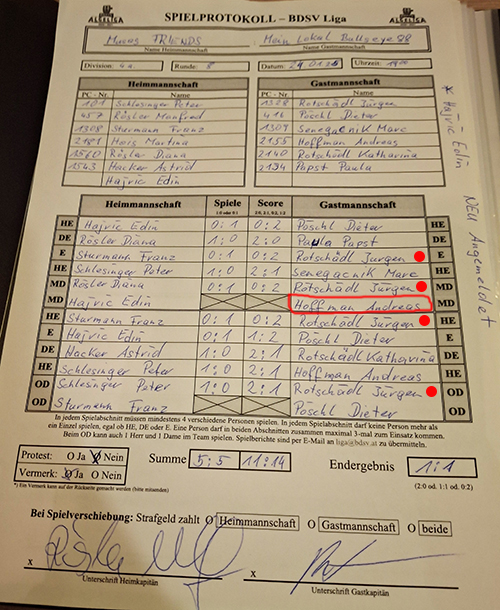 ALKALIGA
SPIELPROTOKOLL – BDSV Liga
ALKALIGA
FRIENDS Mein Lokal Bullseye 88
Name Heimmannschaft Name Gastmannschaft
Division: 4a Runde: 8 Datum: Uhrzeit: 1900
Heimmannschaft Gastmannschaft
PC - Nr. Name PC - Nr. Name
101 Schlesinger Peter 1328 Rotschädl Jürgen
457 Rösler Manfred 416 Pöschl Dieter
1308 Sturmann Franz 1309 Senegacnik Marc
2181 Martina 2155 Hoffman Andreas
1560 Rösler Diana 2140 Rotschädl Katharina
1543 Hacker Astrid 2134 Papst Paula
Hajric Edin
* Hajric Edin NEU Angemeldet
Heimmannschaft Spiele Score Gastmannschaft
(1:0 oder 0:1) (2:0, 2:1, 0:2, 1:2)
HE Hajric Edin 0:1 0:2 Pöschl Dieter HE
DE Rösler Diana 1:0 2:0 Paula Papst DE
E Sturmann Franz 0:1 0:2 Rotschädl Jürgen E
HE Schlesinger Peter 1:0 2:1 Senegacnik Marc HE
MD Rösler Diana 0:1 0:2 Rotschädl Jürgen MD
MD Hajric Edin Hoffman Andreas MD
HE Sturmann Franz 0:1 0:2 Rotschädl Jürgen HE
E Hajric Edin 0:1 1:2 Pöschl Dieter E
DE Hacker Astrid 1:0 2:1 Rotschädl Katharina DE
HE Schlesinger Peter 1:0 2:1 Hoffman Andreas HE
OD Schlesinger Peter 1:0 2:1 Rotschädl Jürgen OD
OD Sturmann Franz Pöschl Dieter OD
In jedem Spielabschnitt müssen mindestens 4 verschiedene Personen spielen. In jedem Spielabschnitt darf keine Person mehr als
ein Einzel spielen, egal ob HE, DE oder E. Eine Person darf in beiden Abschnitten zusammen maximal 3-mal zum Einsatz kommen.
Beim OD kann auch 1 Herr und 1 Dame im Team spielen. Spielberichte sind per E-Mail an liga@bdsv.at zu übermitteln.
Protest: O Ja O Nein Summe 5:5 11:14 Endergebnis 1:1
Vermerk: O Ja O Nein (2:0 od. 1:1 od. 0:2)
*) Ein Vermerk kann auf der Rückseite gemacht werden (bitte mitsenden)
Bei Spielverschiebung: Strafgeld zahlt O Heimmannschaft O Gastmannschaft O beide
x x
Unterschrift Heimkapitän Unterschrift Gastkapitän